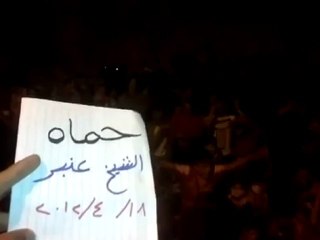 حماه
الشيخ عنبر
١٨/ ٤/ ٢٠١٢